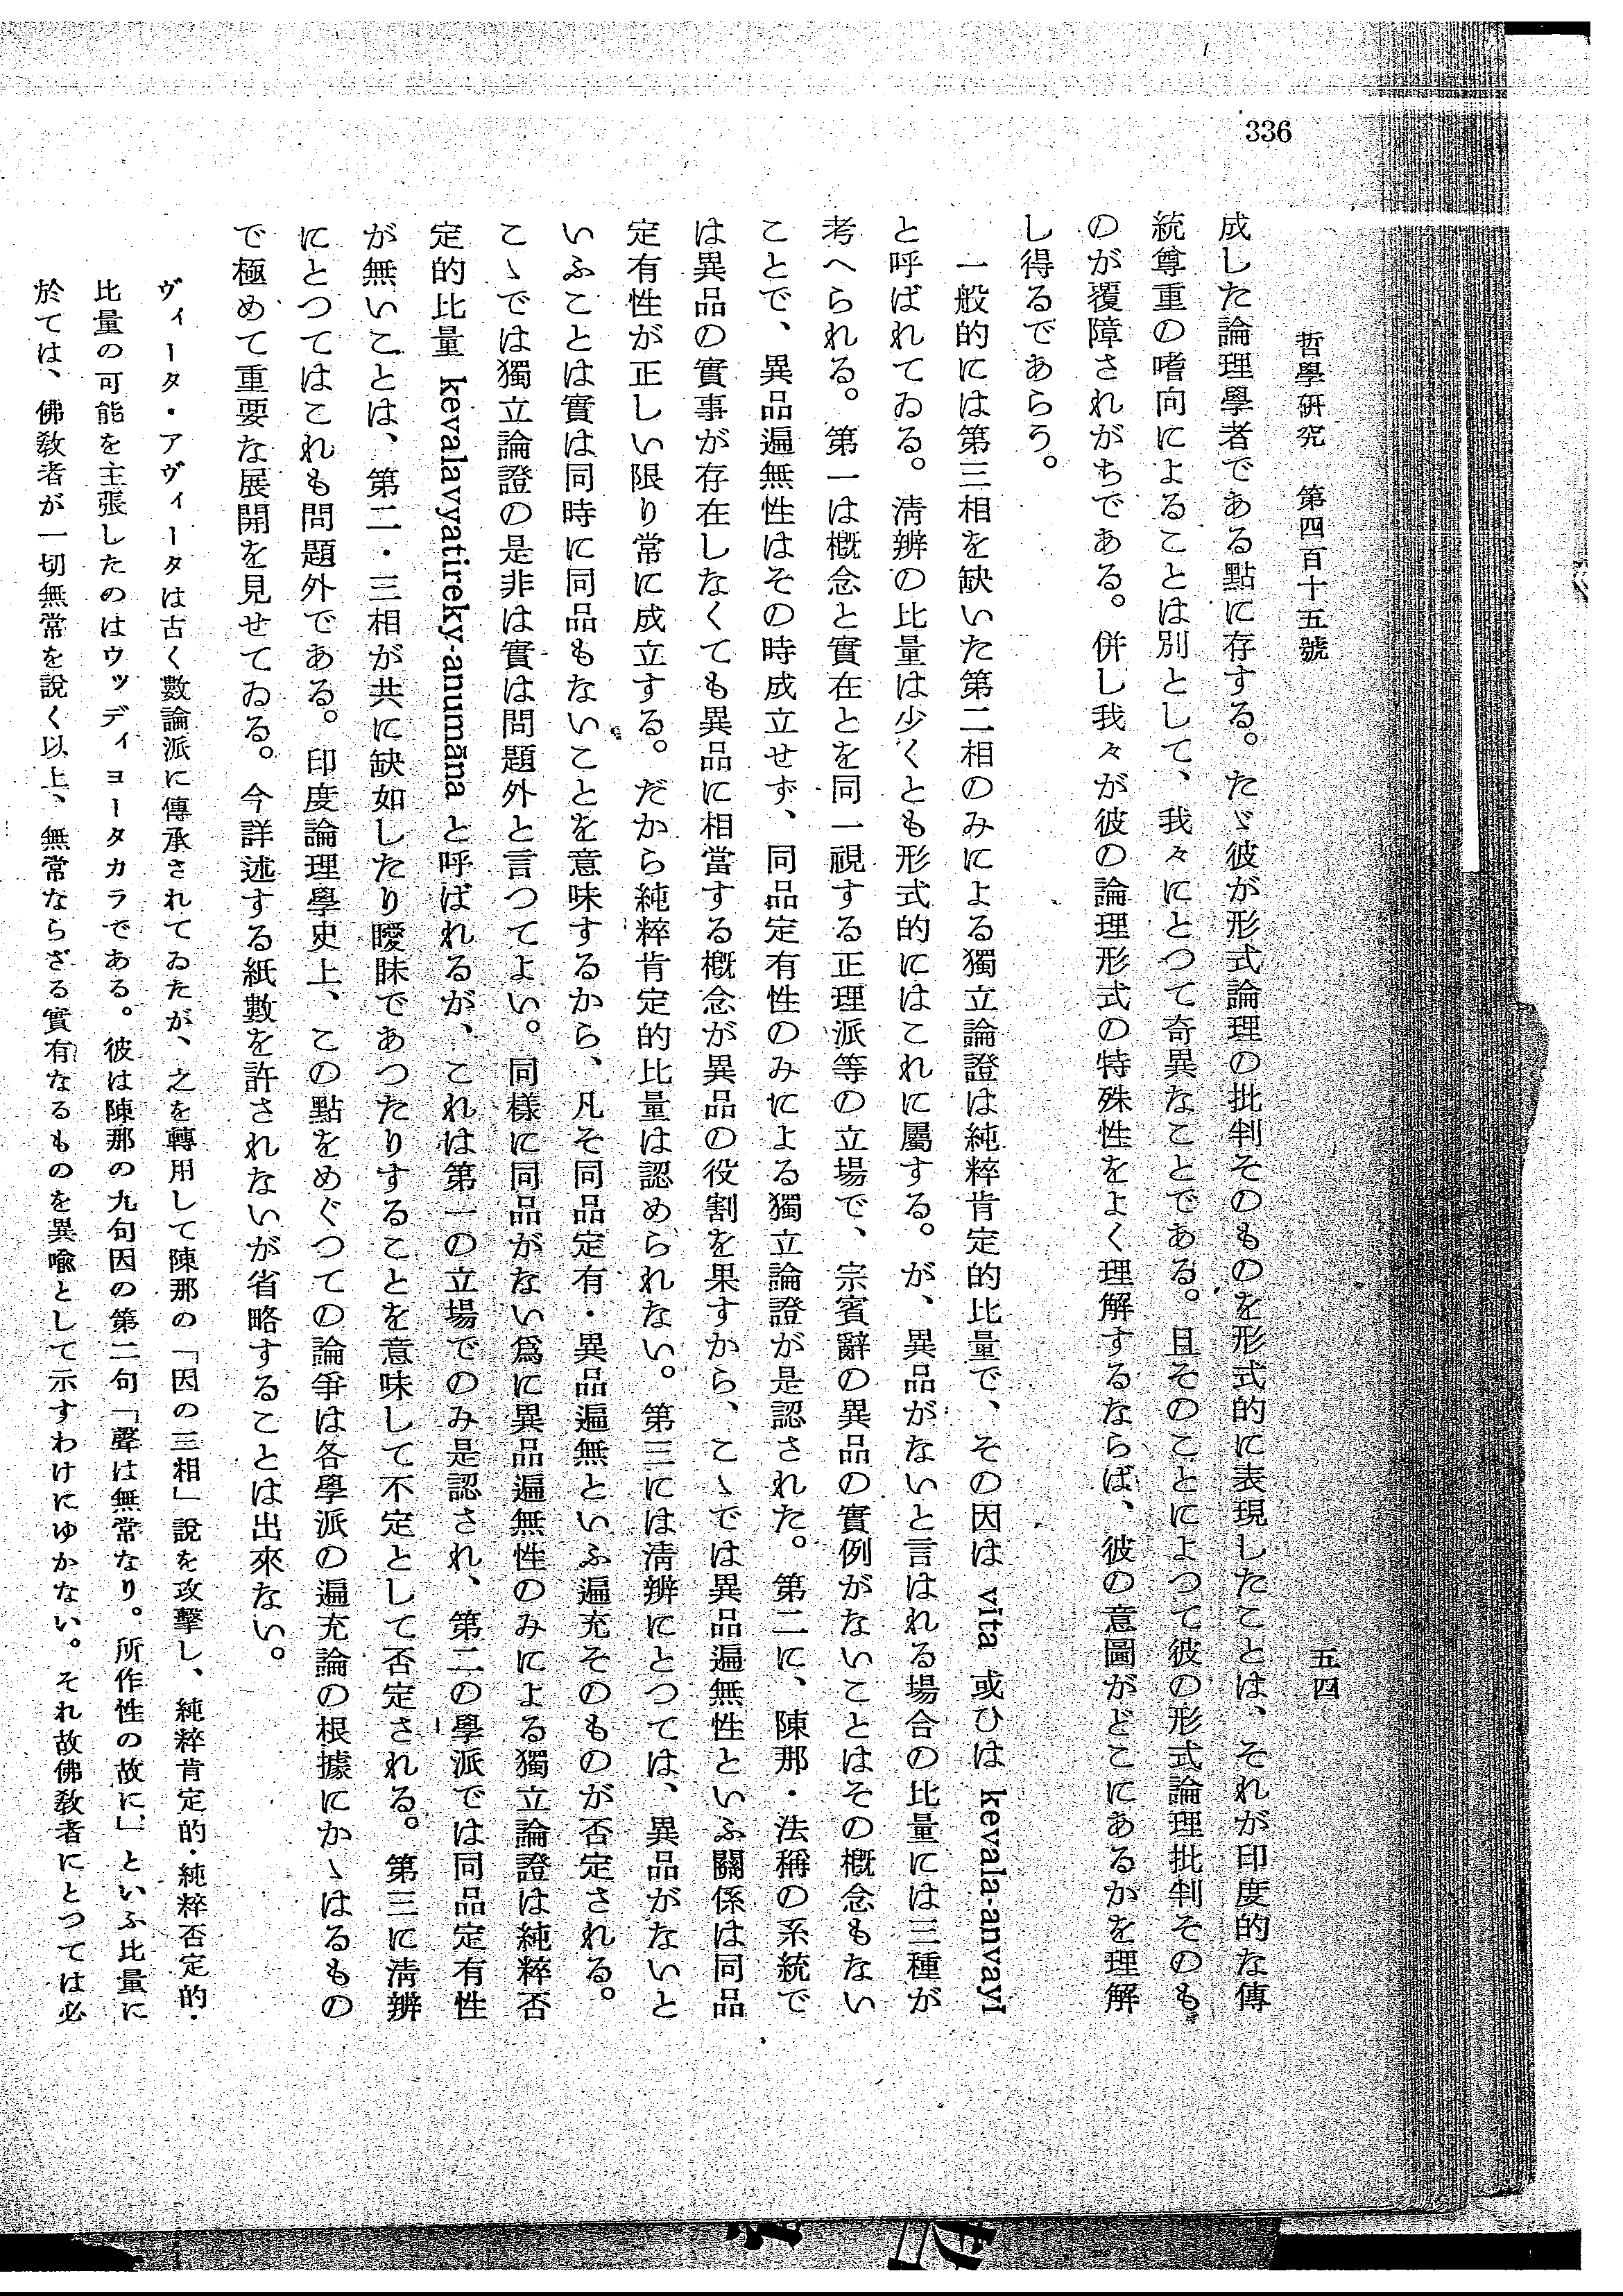 336
哲學硏究　第四百十五號
五四
成した論理學者である點に存する。たゞ彼が形式論理の批判そのものを形式的に表現したことは、それが印度的な傳
統尊重の嗜向によることは別として、我々にとつて奇異なことである。且そのことによつて彼の形式論理批判そのも
のが覆障されがちである。併し我々が彼の論理形式の特殊性をよく理解するならば、彼の意圖がどこにあるかを理解
し得るであらう。
一般的には第三相を缺いた第二相のみによる獨立論證は純粹肯定的比量で、その因は vīta 或ひは kevala-anvayī
と呼ばれてゐる。淸辨の比量は少くとも形式的にはこれに屬する。が、異品がないと言はれる場合の比量には三種が
考へられる。第一は槪念と實在とを同一視する正理派等の立場で、宗賓辭の異品の實例がないことはその槪念もない
ことで、異品遍無性はその時成立せず、同品定有性のみによる獨立論證が是認された。第二に、陳那・法稱の系統で
は異品の實事が存在しなくても異品に相當する槪念が異品の役割を果すから、こゝでは異品遍無性といふ關係は同品
定有性が正しい限り常に成立する。だから純粹肯定的比量は認められない。第三には淸辨にとつては、異品がないと
いふことは實は同時に同品もないことを意味するから、凡そ同品定有・異品遍無といふ遍充そのものが否定される。
こゝでは獨立論證の是非は實は問題外と言つてよい。同樣に同品がない爲に異品遍無性のみによる獨立論證は純粹否
定的比量 kevalavyatireky-anumāna と呼ばれるが、これは第一の立場でのみ是認され、第二の學派では同品定有性
が無いことは、第二・三相が共に缺如したり曖昧であつたりすることを意味して不定として否定される。第三に淸辨
にとつてはこれも問題外である。印度論理學史上、この點をめぐつての論爭は各學派の遍充論の根據にかゝはるもの
で極めて重要な展開を見せてゐる。今詳述する紙數を許されないが省略することは出來ない。
ヴィータ・アヴィータは古く數論派に傳承されてゐたが、之を轉用して陳那の「因の三相」說を攻擊し、純粹肯定的・純粹否定的・
比量の可能を主張したのはウッディヨータカラである。彼は陳那の九句因の第二句「聲は無常なり。所作性の故に」といふ比量に
於ては、佛敎者が一切無常を說く以上、無常ならざる實有なるものを異喩として示すわけにゆかない。それ故佛敎者にとつては必